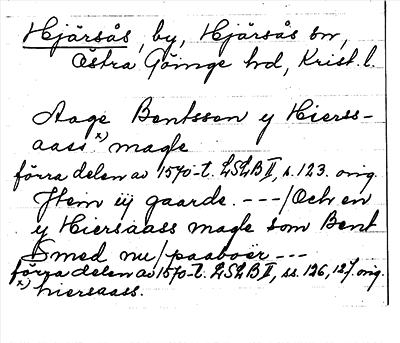 Hjärsås, by, Hjärsås sn,
Östra Göinge hd, Krist. l.
Aage Bentsson y Hierss-
aass x) magle
förra delen av 1570-t. LSLB II, s. 123. orig.
Jtem iij gaarde. ---/Och en
y Hiersaass magle som Bent
Smed nu/paaboer ---
förra delen av 1570-t. LSLB II, ss. 126, 127. orig.
x) hiersaass.